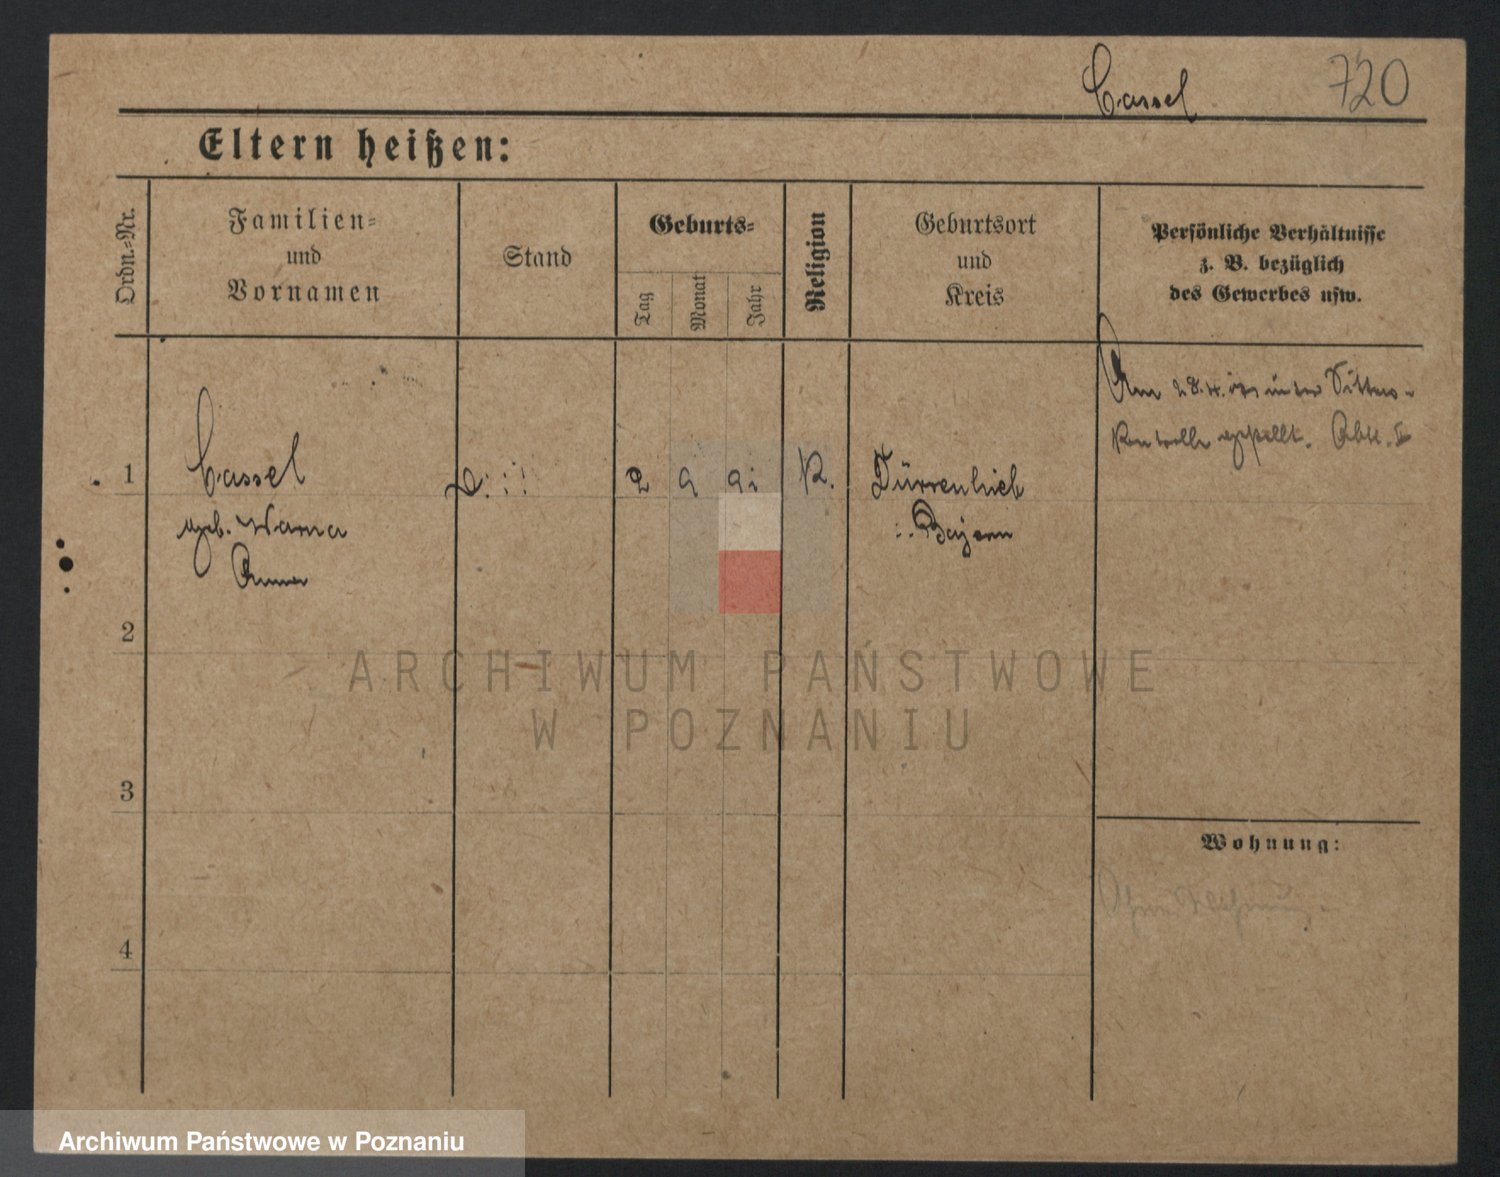 Cassel 720
Eltern heißen:
Ordn.=Nr.
Familien=
und
Vornamen
Stand
Geburts=
Tag
Monat
Jahr
Religion
Geburtsort
und
Kreis
Persönliche Verhältnisse
z. B. bezüglich
des Gewerbes usw.
Am 28.4. unter Sitten-
kontrolle gestellt. Abt. II
1
Cassel
geb.
Anna
2 9 91
K.
Bayern
2
3
4
Wohnung:
Ohne Wohnung.
ARCHIWUM PAŃSTWOWE
W POZNANIU
Archiwum Państwowe w Poznaniu